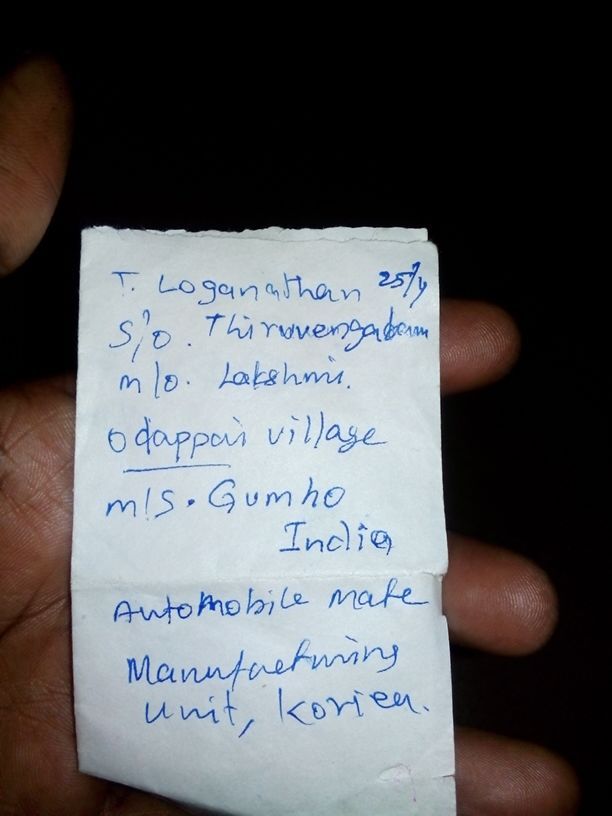 T. Loganathan 25/y
S/o. Thiruvengadam
m/o. Lakshmi.
Odappai village
m/s. Gumho
India
Automobile mate
Manufacturing
unit, Koriea.